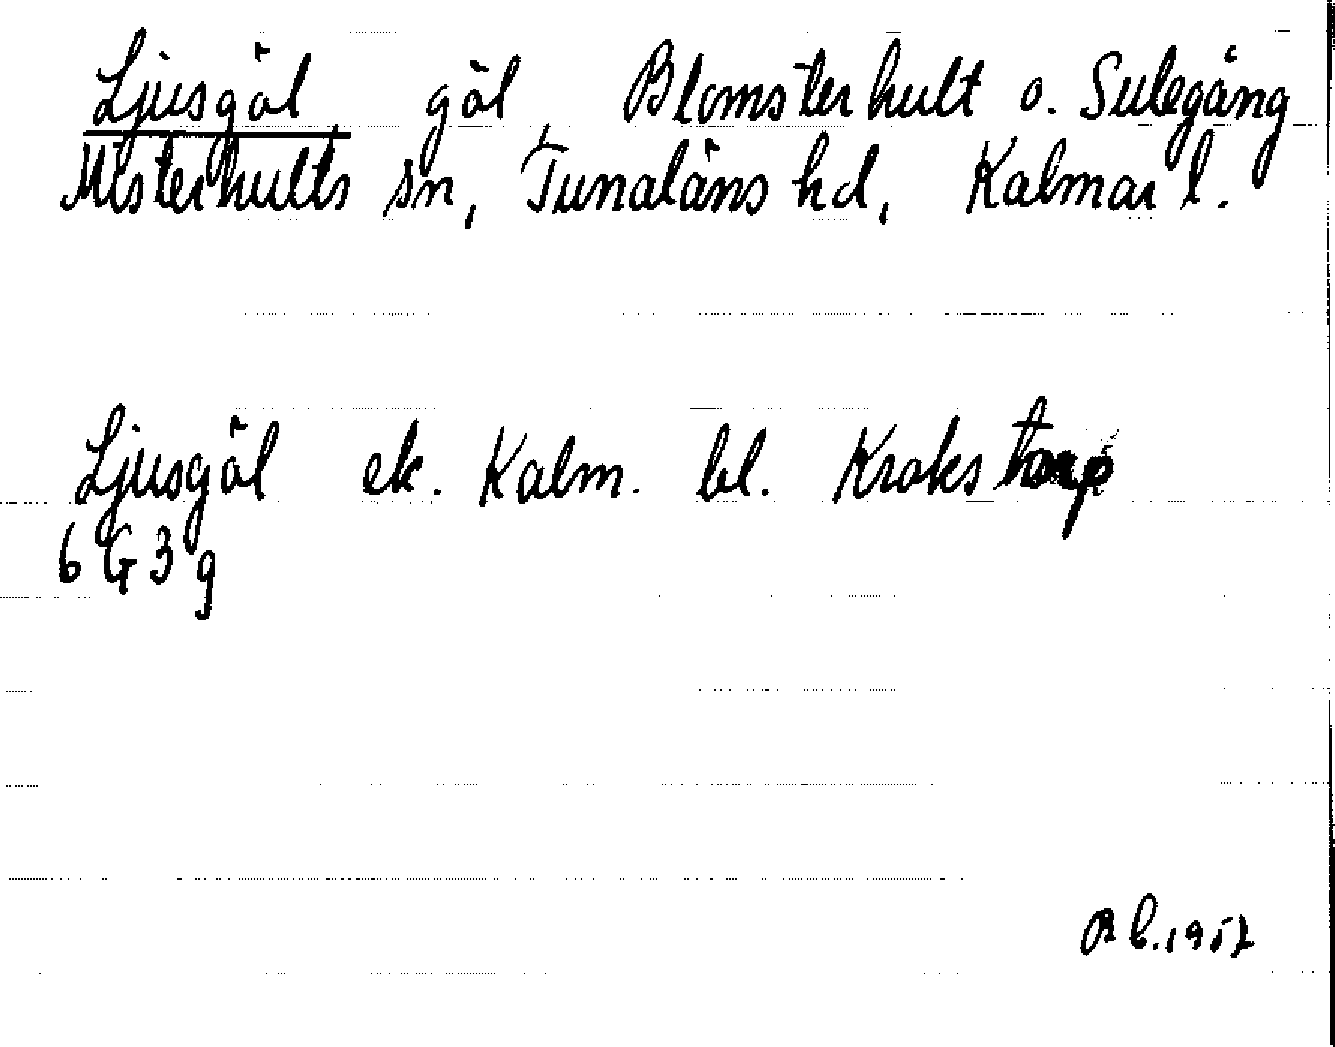 Ljusgöl göl, Blomsterhult o. Sulegång
Misterhults sn, Tunaläns hd, Kalmar l.
Ljusgöl ek. Kalm. bl. Krokstorp
6 G 3 g
Rb. 1952